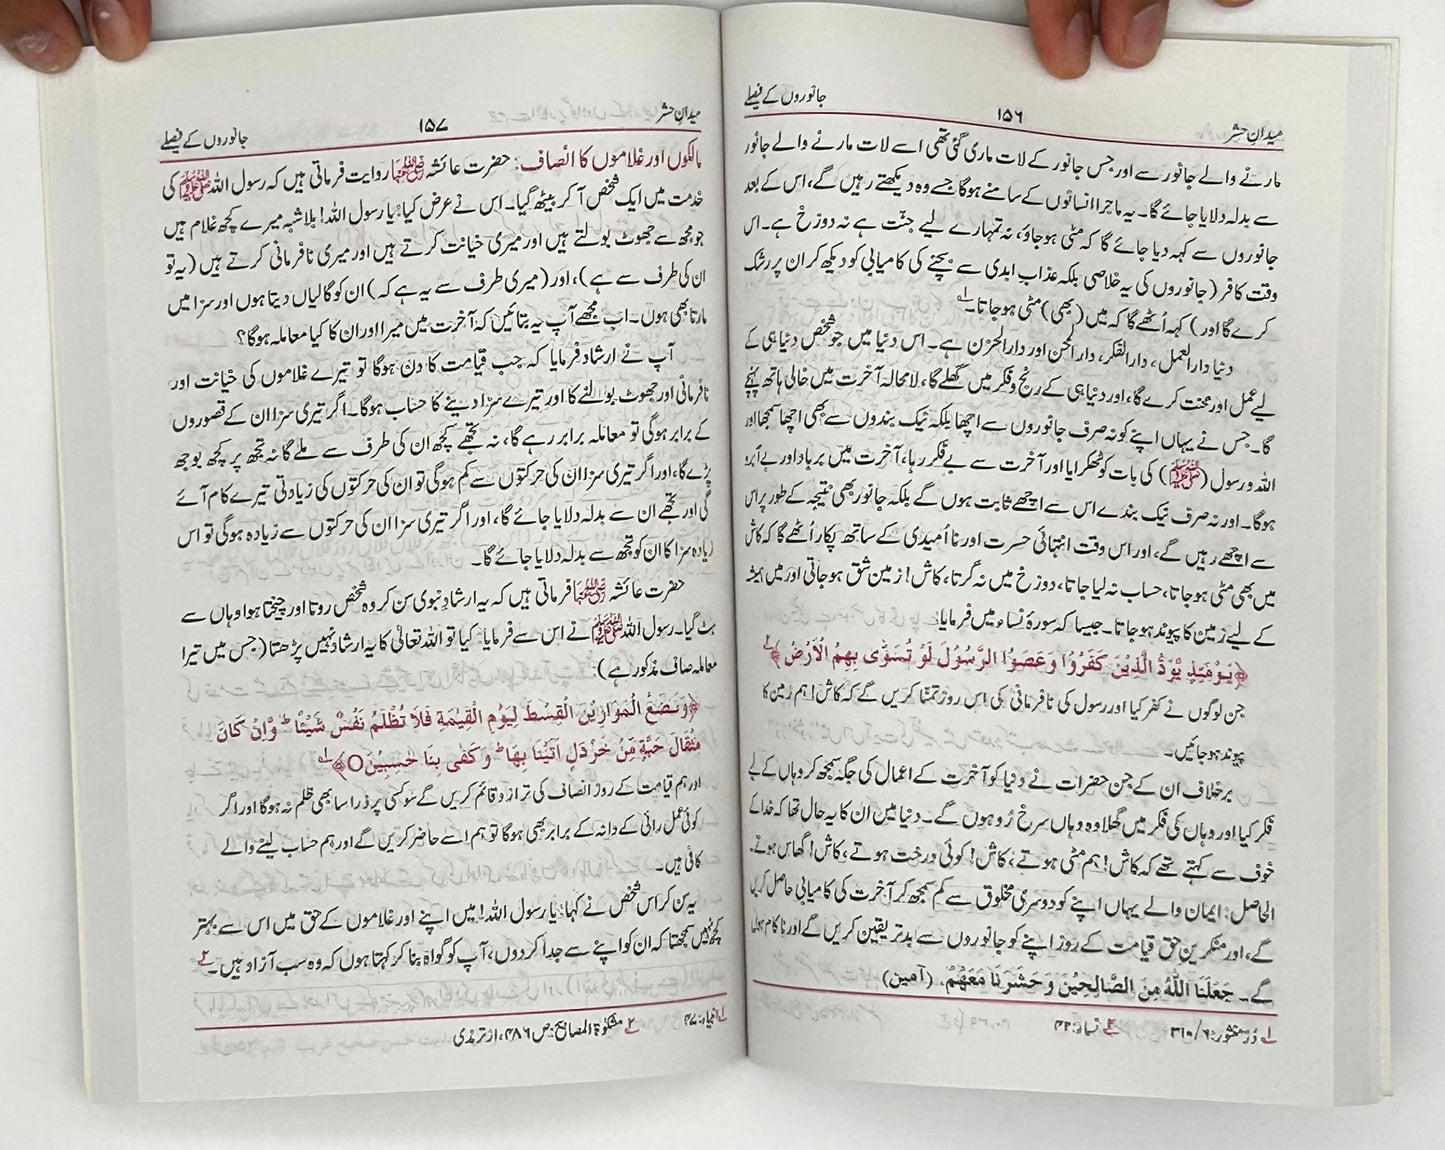 میدانِ حشر ۱۵۶ جانوروں کے فیصلے
مارنے والے جانور سے اور جس جانور کے لات ماری گئی تھی اسے لات مارنے والے جانور
سے بدلہ دلایا جائے گا۔ یہ ماجرا انسانوں کے سامنے ہوگا جسے وہ دیکھتے رہیں گے، اس کے بعد
جانوروں سے کہہ دیا جائے گا کہ مٹی ہوجاؤ، نہ تمہارے لیے جنّت ہے نہ دوزخ ہے۔ اس
وقت کافر (جانوروں کی یہ خلاصی بلکہ عذاب ابدی سے بچنے کی کامیابی کو دیکھ کر ان پر رشک
کرے گا اور) کہہ اُٹھے گا کہ میں (بھی) مٹی ہوجاتا۔ ؂۱
دنیا دارالعمل، دارالفکر، دارالمحن اور دارالحزن ہے۔ اس دنیا میں جو شخص دنیا ہی کے
لیے عمل اور محنت کرے گا، اور دنیا ہی کے رنج و فکر میں گھلے گا، لامحالہ آخرت میں خالی ہاتھ پہنچے
گا۔ جس نے یہاں اپنے کو نہ صرف جانوروں سے اچھا بلکہ نیک بندوں سے بھی اچھا سمجھا اور
اللہ و رسول (ﷺ) کی بات کو ٹھکرایا اور آخرت سے بے فکر رہا، آخرت میں برباد اور بے آبرو
ہوگا۔ اور نہ صرف نیک بندے اس سے اچھے ثابت ہوں گے بلکہ جانور بھی نتیجہ کے طور پر اس
سے اچھے رہیں گے، اور اس وقت انتہائی حسرت اور نا اُمیدی کے ساتھ پکار اُٹھے گا کہ کاش
میں بھی مٹی ہوجاتا، حساب نہ لیا جاتا، دوزخ میں نہ گرتا، کاش! زمین شق ہوجاتی اور میں ہمیشہ
کے لیے زمین کا پیوند ہوجاتا۔ جیسا کہ سورۂ نساء میں فرمایا:
﴿يَوْمَئِذٍ يَّوَدُّ الَّذِيْنَ كَفَرُوْا وَعَصَوُا الرَّسُوْلَ لَوْ تُسَوّٰى بِهِمُ الْاَرْضُ﴾ ؂۲
جن لوگوں نے کفر کیا اور رسول کی نافرمانی کی اس روز تمنّا کریں گے کہ کاش! ہم زمین کا
پیوند ہوجائیں۔
برخلاف ان کے جن حضرات نے دنیا کو آخرت کے اعمال کی جگہ سمجھ کر وہاں کے لیے
فکر کیا اور وہاں کی فکر میں گھلا وہ وہاں سرخ رُو ہوں گے۔ دنیا میں ان کا یہ حال تھا کہ خدا کے
خوف سے کہتے تھے کہ کاش! ہم مٹی ہوتے، کاش! کوئی درخت ہوتے، کاش! گھاس ہوتے۔
الحاصل: ایمان والے یہاں اپنے کو دوسری مخلوق سے کم سمجھ کر آخرت کی کامیابی حاصل کریں
گے، اور منکرینِ حق قیامت کے روز اپنے کو جانوروں سے بدتر یقین کریں گے اور ناکام ہوں
گے۔ جَعَلَنَا اللّٰهُ مِنَ الصَّالِحِيْنَ وَ حَشَرَنَا مَعَهُمْ. (آمین)
؂۱ دُرِّ منثور: ۶/۳۱۰ ؂۲ نساء: ۴۲
میدانِ حشر ۱۵۷ جانوروں کے فیصلے
مالکوں اور غلاموں کا انصاف: حضرت عائشہ رضی اللہ عنہا روایت فرماتی ہیں کہ رسول اللہ ﷺ کی
خدمت میں ایک شخص آ کر بیٹھ گیا۔ اس نے عرض کیا: یا رسول اللہ! بلاشبہ میرے کچھ غلام ہیں
جو مجھ سے جھوٹ بولتے ہیں اور میری خیانت کرتے ہیں اور میری نافرمانی کرتے ہیں (یہ تو
ان کی طرف سے ہے)، اور (میری طرف سے یہ ہے کہ) ان کو گالیاں دیتا ہوں اور سزا میں
مارتا بھی ہوں۔ اب مجھے آپ یہ بتائیں کہ آخرت میں میرا اور ان کا کیا معاملہ ہوگا؟
آپ نے ارشاد فرمایا کہ جب قیامت کا دن ہوگا تو تیرے غلاموں کی خیانت اور
نافرمانی اور جھوٹ بولنے کا اور تیرے سزا دینے کا حساب ہوگا۔ اگر تیری سزا ان کے قصوروں
کے برابر ہوگی تو معاملہ برابر رہے گا، نہ تجھے کچھ ان کی طرف سے ملے گا نہ تجھ پر کچھ بوجھ
پڑے گا، اور اگر تیری سزا ان کی حرکتوں سے کم ہوگی تو ان کی حرکتوں کی زیادتی تیرے کام آئے
گی اور تجھے ان سے بدلہ دلایا جائے گا، اور اگر تیری سزا ان کی حرکتوں سے زیادہ ہوگی تو اس
زیادہ سزا کا ان کو تجھ سے بدلہ دلایا جائے گا۔
حضرت عائشہ رضی اللہ عنہا فرماتی ہیں کہ یہ ارشادِ نبوی سن کر وہ شخص روتا اور چیختا ہوا وہاں سے
ہٹ گیا۔ رسول اللہ ﷺ نے اس سے فرمایا: کیا تو اللہ تعالیٰ کا یہ ارشاد نہیں پڑھتا (جس میں تیرا
معاملہ صاف مذکور ہے):
﴿وَنَضَعُ الْمَوَازِيْنَ الْقِسْطَ لِيَوْمِ الْقِيٰمَةِ فَلَا تُظْلَمُ نَفْسٌ شَيْئًا ؕ وَاِنْ كَانَ
مِثْقَالَ حَبَّةٍ مِّنْ خَرْدَلٍ اَتَيْنَا بِهَا ؕ وَكَفٰى بِنَا حٰسِبِيْنَ O﴾ ؂۱
اور ہم قیامت کے روز انصاف کی ترازو قائم کریں گے سو کسی پر ذرا سا بھی ظلم نہ ہوگا اور اگر
کوئی عمل رائی کے دانہ کے برابر بھی ہوگا تو ہم اسے حاضر کریں گے اور ہم حساب لینے والے
کافی ہیں۔
یہ سن کر اس شخص نے کہا: یا رسول اللہ! میں اپنے اور غلاموں کے حق میں اس سے بہتر
کچھ نہیں سمجھتا کہ ان کو اپنے سے جدا کردوں، آپ کو گواہ بنا کر کہتا ہوں کہ وہ سب آزاد ہیں۔ ؂۲
؂۱ انبیاء: ۴۷ ؂۲ مشکوٰۃ المصابیح: ص ۴۸۶، از ترمذی